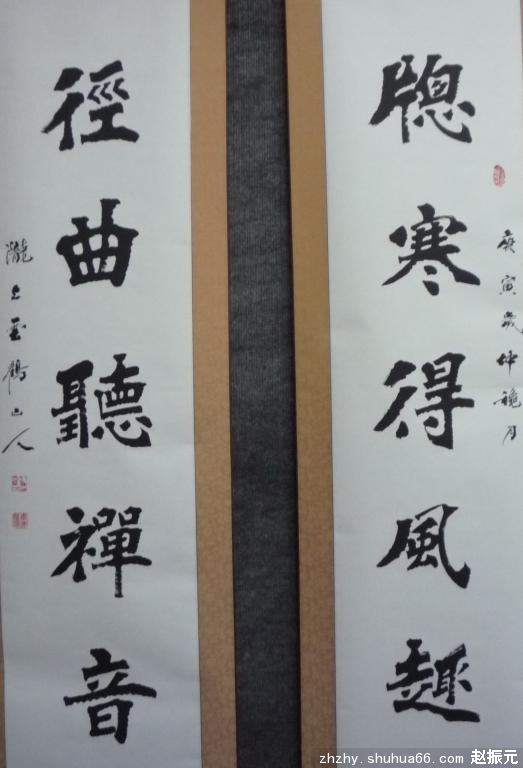 牕寒得風趣
庚寅歲仲龝月
徑曲聽禪音
隴上雲鶴山人
zhzhy.shuhua66.com 赵振元